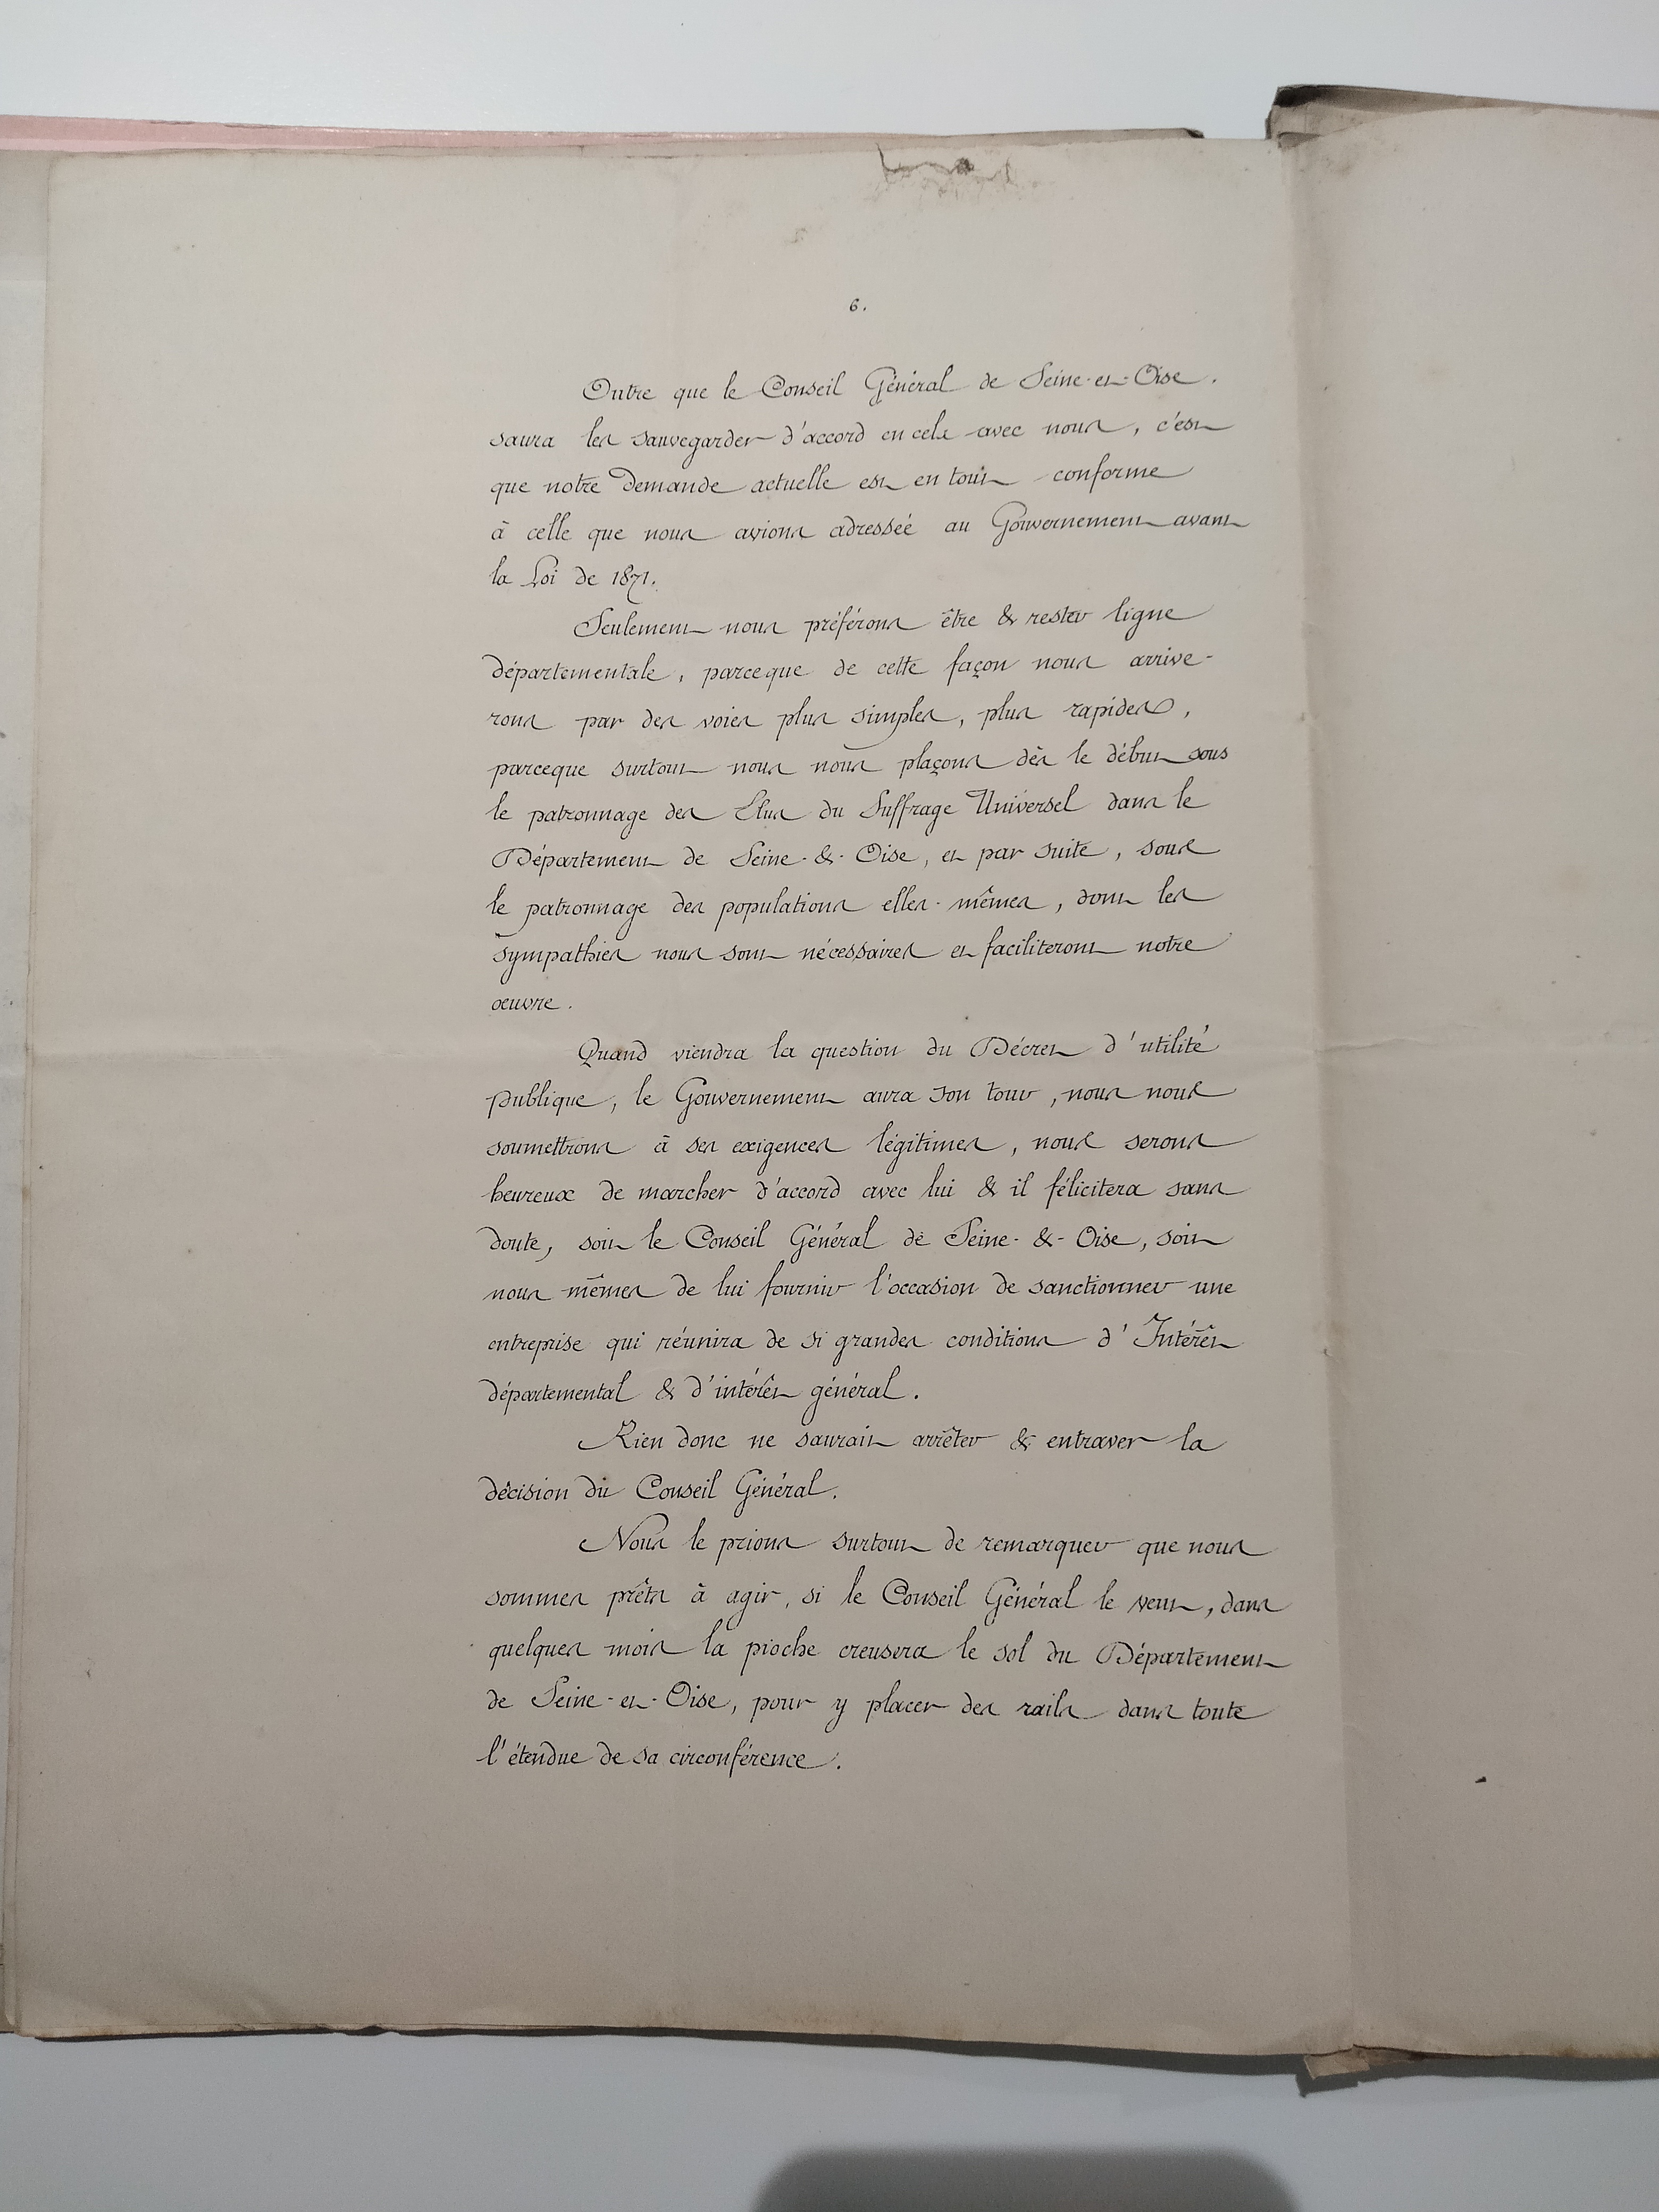 6.
Outre que le Conseil Général de Seine-et-Oise.
saura les sauvegarder d'accord en cela avec nous, c'est
que notre demande actuelle est en tout conforme
à celle que nous avions adressée au Gouvernement avant
la Loi de 1871.
Seulement nous préférons être & rester ligne
départementale, parceque de cette façon nous arrive-
rons par des voies plus simples, plus rapides,
parceque surtout nous nous plaçons dès le début sous
le patronnage des Elus du Suffrage Universel dans le
Département de Seine-&-Oise, et par suite, sous
le patronnage des populations elles-mêmes, dont les
sympathies nous sont nécessaires et faciliteront notre
œuvre.
Quand viendra la question du Décret d'utilité
publique, le Gouvernement aura son tour, nous nous
soumettrons à ses exigences légitimes, nous serons
heureux de marcher d'accord avec lui & il félicitera sans
doute, soit le Conseil Général de Seine-&-Oise, soit
nous mêmes de lui fournir l'occasion de sanctionner une
entreprise qui réunira de si grandes conditions d'Intérêt
départemental & d'intérêt général.
Rien donc ne saurait arrêter & entraver la
décision du Conseil Général.
Nous le prions surtout de remarquer que nous
sommes prêts à agir, si le Conseil Général le veut, dans
quelques mois la pioche creusera le sol du Département
de Seine-et-Oise, pour y placer des rails dans toute
l'étendue de sa circonférence.